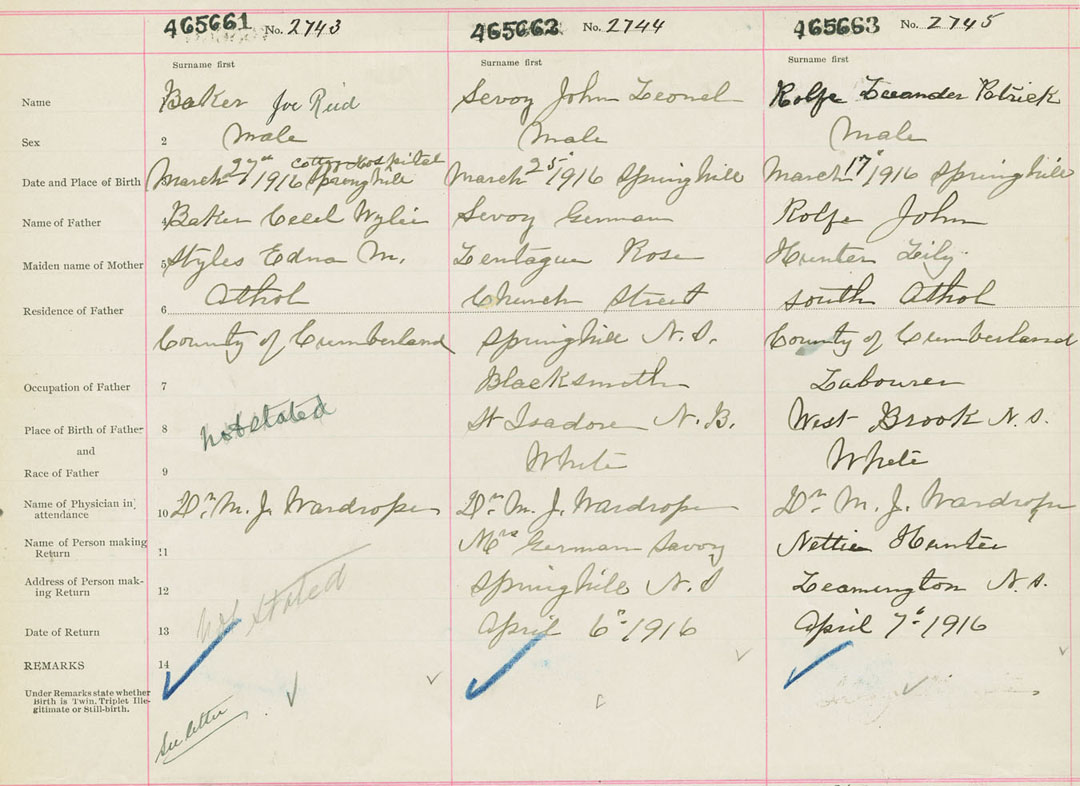 465661 No. 2743
465662 No. 2744
465663 No. 2745
Surname first
Surname first
Surname first
Name
Baker Joe Reid
Sevoy John Leonel
Rolfe Leeander Patrick
Sex
2
Male
Male
Male
Date and Place of Birth
March 27th 1916 Cottage Hospital Springhill
March 25" 1916 Springhill
March 17" 1916 Springhill
Name of Father
4
Baker Cecil Wylie
Sevoy German
Rolfe John
Maiden name of Mother
5
Styles Edna M.
Lentague Rose
Hunter Lily
Residence of Father
6
Athol
Church Street
South Athol
County of Cumberland
Springhill N.S.
County of Cumberland
Occupation of Father
7
Blacksmith
Labourer
Place of Birth of Father
8
not stated
St Isadore N.B.
West Brook N.S.
and
Race of Father
9
White
White
Name of Physician in
attendance
10
Dr. M. J. Wardrope
Dr. M. J. Wardrope
Dr M. J. Wardrope
Name of Person making
Return
11
Mrs German Savoy
Nettie Hunter
Address of Person mak-
ing Return
12
not stated
Springhill N.S
Leamington N.S.
Date of Return
13
April 6" 1916
April 7" 1916
REMARKS
14
Under Remarks state whether
Birth is Twin, Triplet Ille-
gitimate or Still-birth.
See letter